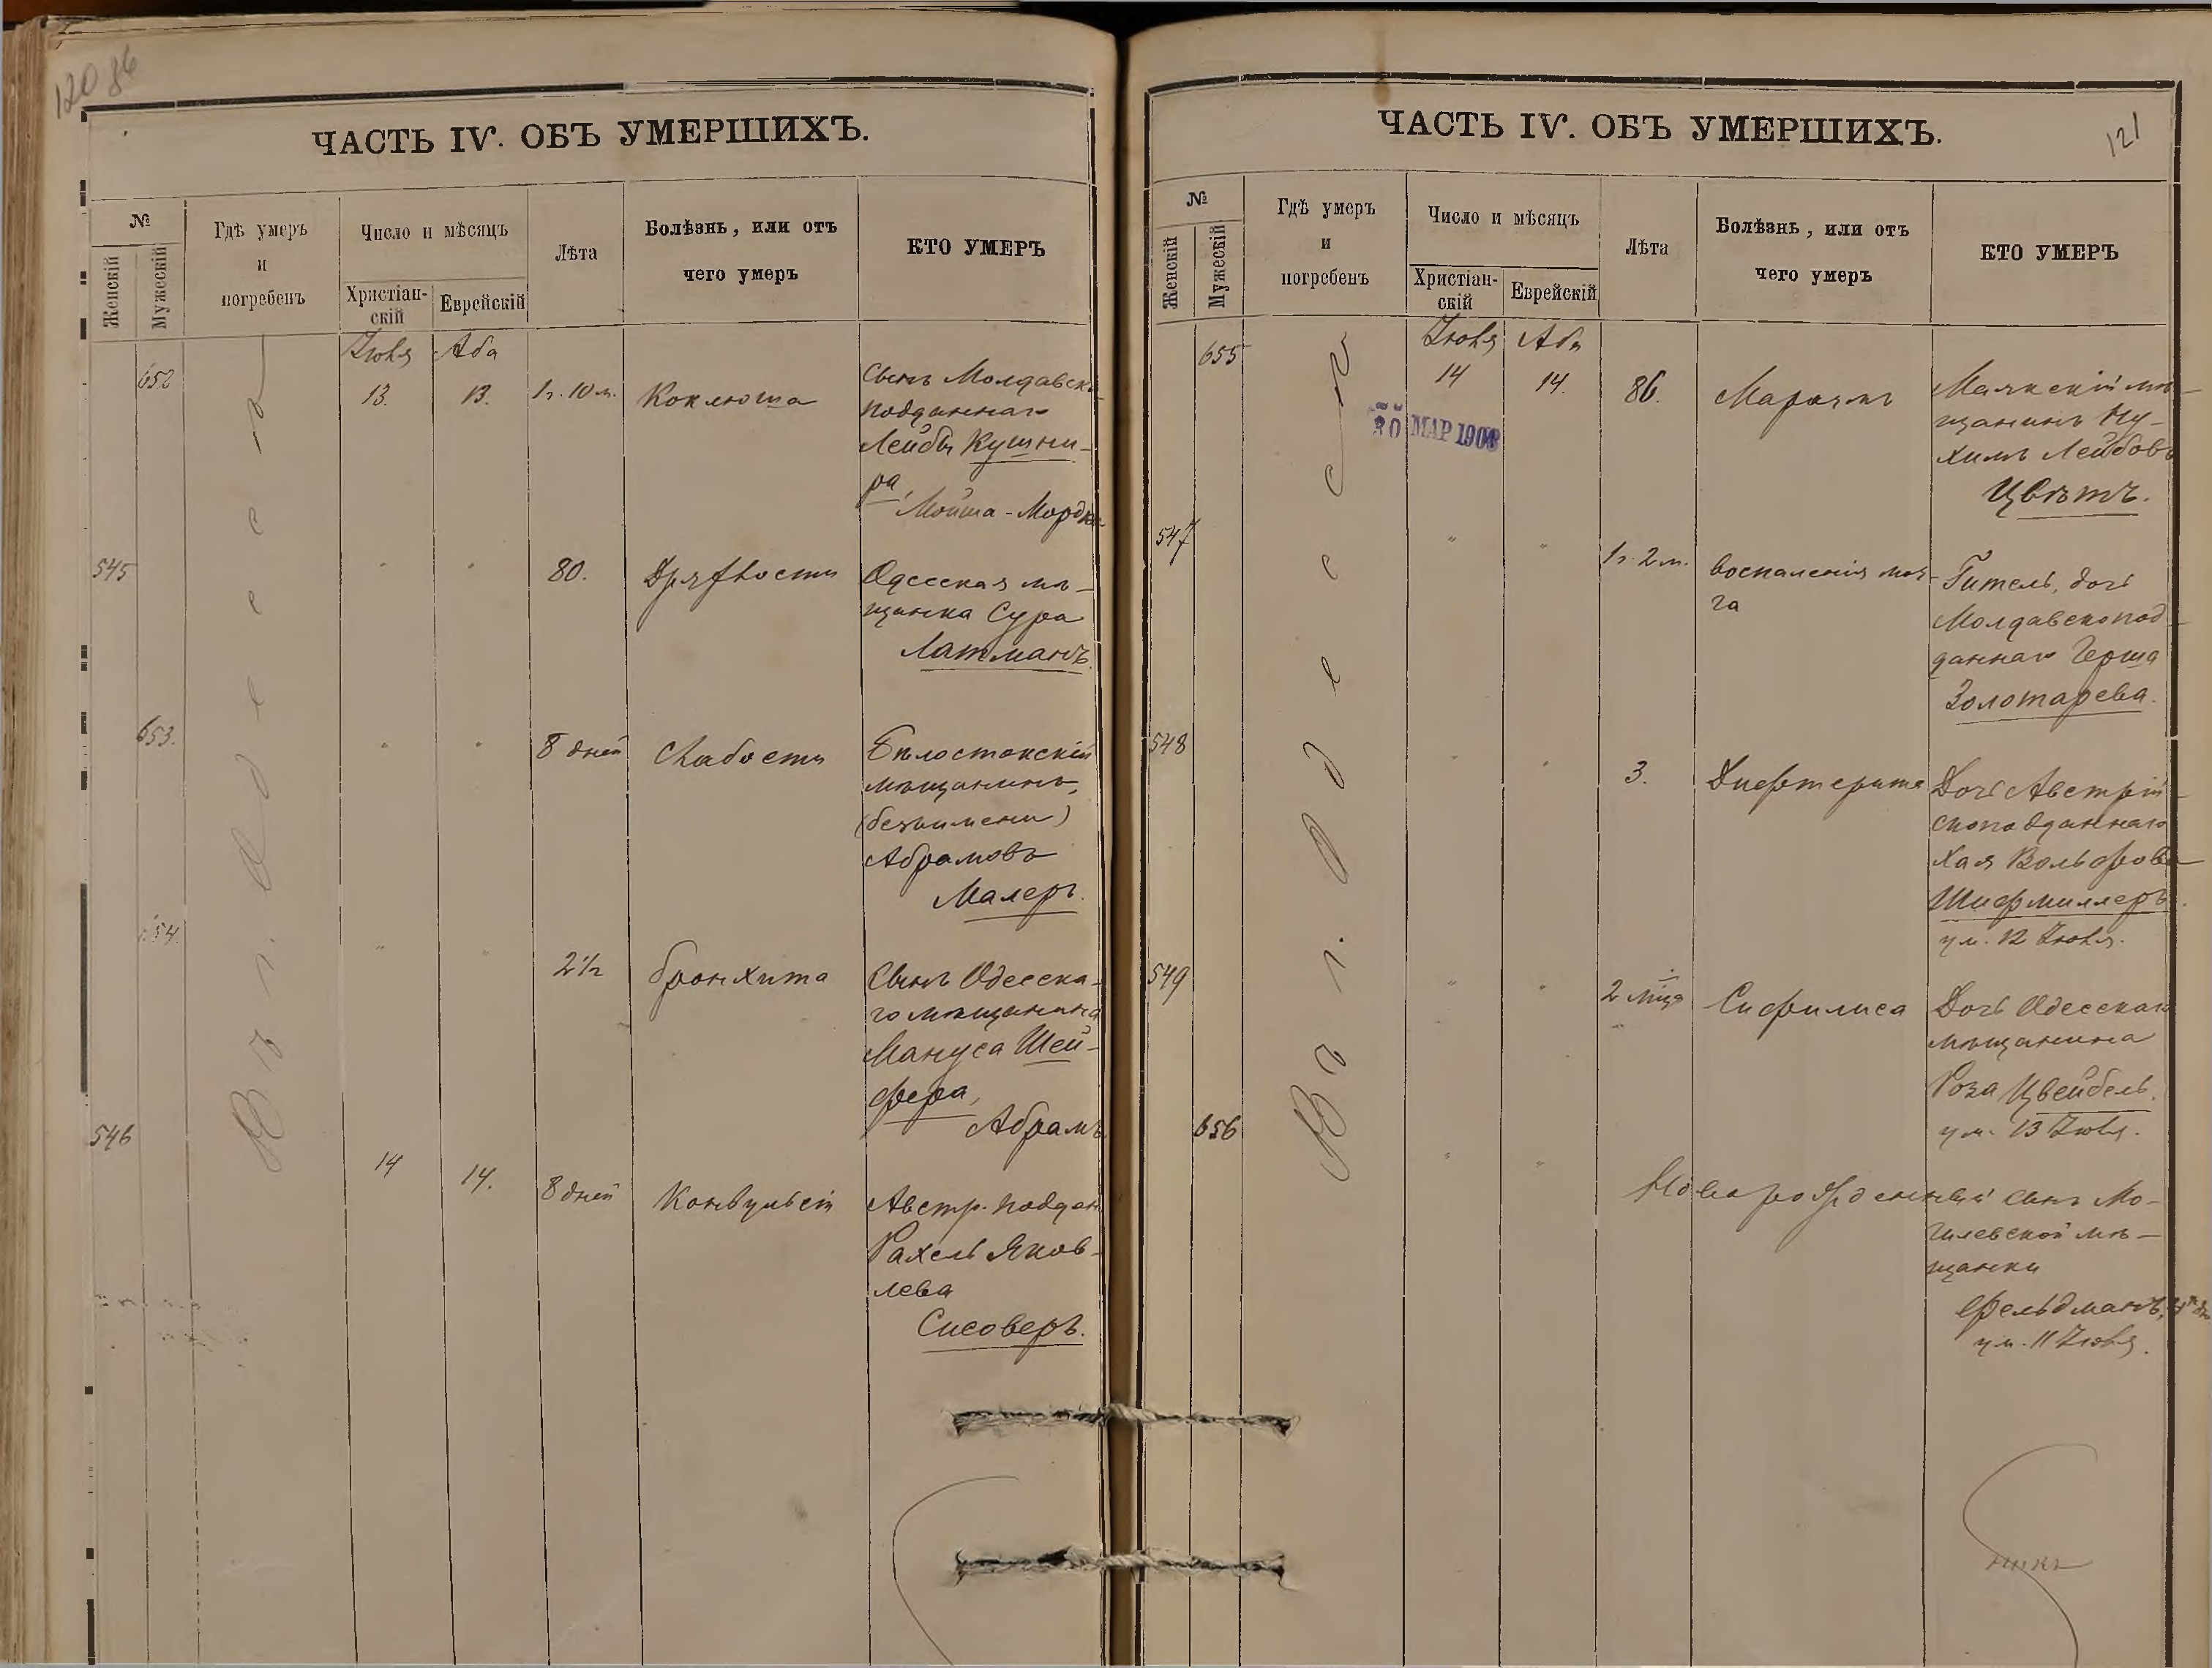 120 86
ЧАСТЬ IV. ОБЪ УМЕРШИХЪ.
№
Женскій
Мужескій
Гдѣ умеръ
и
погребенъ
Число и мѣсяцъ
Христіан-
скій
Еврейскій
Лѣта
Болѣзнь, или отъ
чего умеръ
КТО УМЕРЪ
Въ г. Одессѣ
Іюля Аба
652 13. 13. 1 г. 10 м. Коклюша
Сынъ Молдавск.
подданнаго
Лейбы Кушни-
ра,
Мойша-Мордко
545 " " 80. Дряхлости
Одесская мѣ-
щанка Сура
Латманъ.
653. " " 8 дней Слабости
Бѣлостокскій
мѣщанинъ,
(безъимени)
Абрамовъ
Малеръ.
654 " " 2½ бронхита
Сынъ Одесска-
го мѣщанина
Мануса Шей-
фера,
Абрамъ
546 14 14. 8 дней Конвульсій
Австр. поддан.
Рахель Яков-
лева
Сисоверъ.
121
ЧАСТЬ IV. ОБЪ УМЕРШИХЪ.
№
Женскій
Мужескій
Гдѣ умеръ
и
погребенъ
Число и мѣсяцъ
Христіан-
скій
Еврейскій
Лѣта
Болѣзнь, или отъ
чего умеръ
КТО УМЕРЪ
Въ г. Одессѣ
Іюля Аба
655 14 14. 86. Маразмъ
30 МАР 1908
Маякскій мѣ-
щанинъ Ну-
химъ Лейбовъ
Цвѣтъ.
547 " " 1 г. 2 м. воспаленія моз-
га
Гитель, дочь
Молдавскопод-
даннаго Герша
Золотарева.
548 " " 3. Дифтерита
Дочь Австрій-
скоподданнаго
Хая Вольфова
Шифмиллеръ.
ум. 12 Іюля.
549 " " 2 мѣца Сифилиса
Дочь Одесскаго
мѣщанина
Роза Цвейбель.
ум. 13 Іюля.
656 " " Новорожденный сынъ Мо-
гилевской мѣ-
щанки
Фельдманъ,
ум. 11 Іюля.